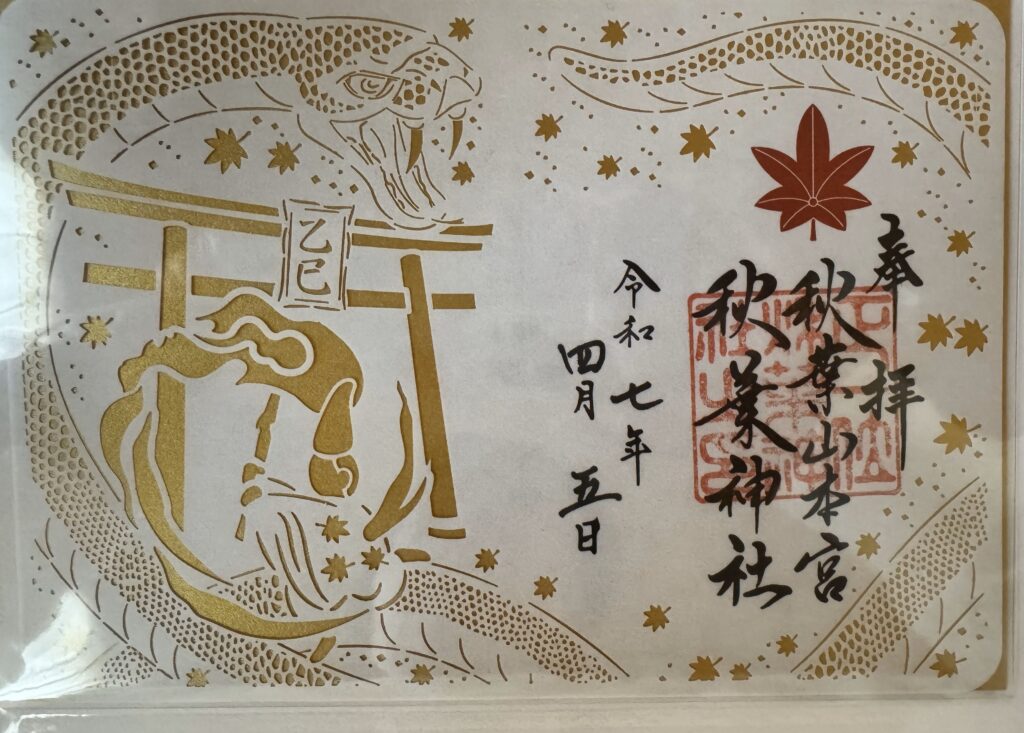 奉拝
秋葉山本宮
秋葉神社
令和七年
四月五日
乙巳